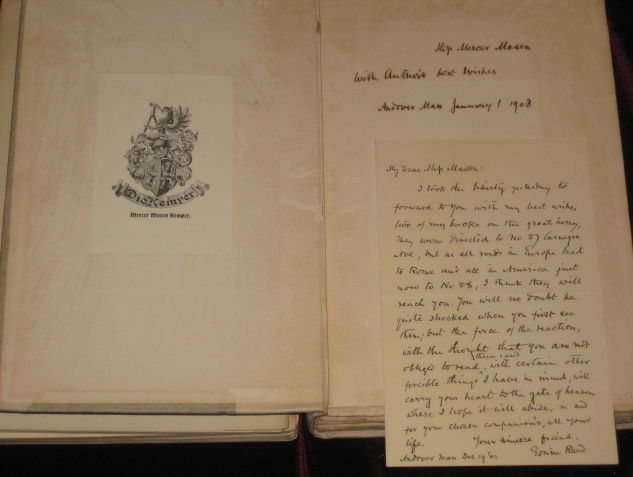 DicKemper
Mercer Mason Kemper.
Miss Mercer Mason
With Author's best Wishes
Andover Mass January 1 1903
My Dear Miss Mason:
I took the liberty yesterday to
forward to you with my best wishes,
two of my books on the great heresy.
They were directed to No 57 Carnegie
Ave, but as all roads in Europe lead
to Rome and all in America just
now to No 58, I think they will
reach you. You will no doubt be
quite shocked when you first see
them; but the force of the reaction,
with the thought that you are not
obliged to read them, and with certain other
forcible things I have in mind, will
carry your heart to the gate of heaven
where I hope it will abide, in and
for your chosen companions, all your
life.
Your sincere friend,
Andover Mass Dec 19 '02
Edwin Reed